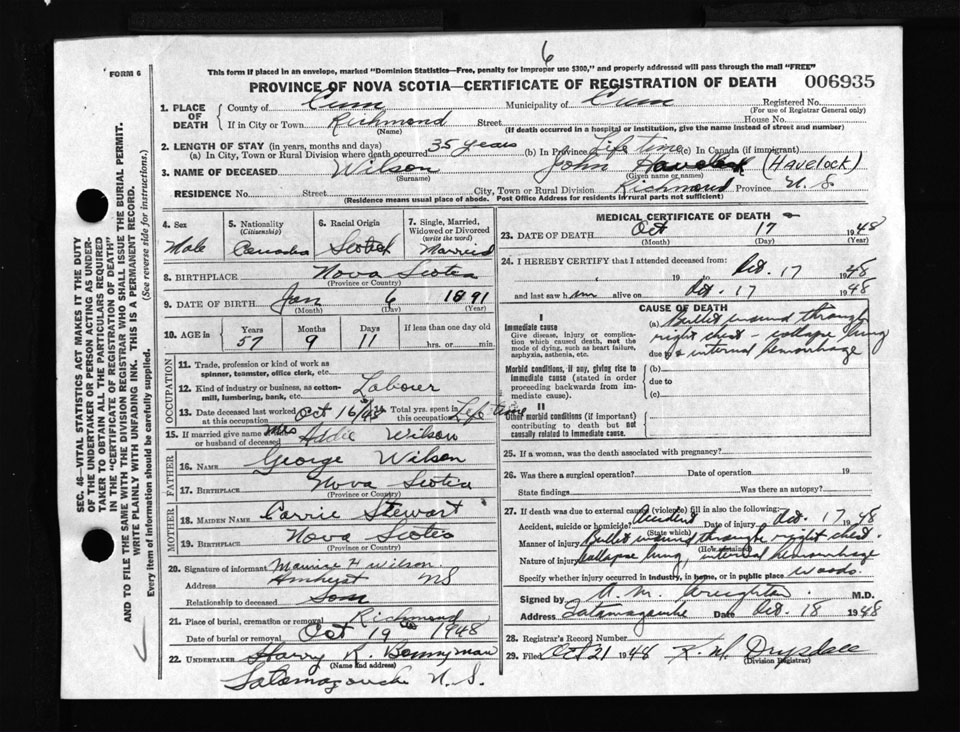 6
This form if placed in an envelope, marked "Dominion Statistics—Free, penalty for improper use $300," and properly addressed will pass through the mail "FREE"
FORM 6
PROVINCE OF NOVA SCOTIA—CERTIFICATE OF REGISTRATION OF DEATH 006935
1. PLACE OF DEATH County of Cum Municipality of Cum Registered No.
(For use of Registrar General only)
If in City or Town Richmond Street House No.
(Name) (If death occurred in a hospital or institution, give the name instead of street and number)
2. LENGTH OF STAY (in years, months and days)
(a) In City, Town or Rural Division where death occurred 35 years (b) In Province Life time (c) In Canada (if immigrant)
3. NAME OF DECEASED Wilson John Havelock (Havelock)
(Surname) (Given name or names)
RESIDENCE No. Street City, Town or Rural Division Richmond Province N. S.
(Residence means usual place of abode. Post Office Address for residents in rural parts not sufficient)
4. Sex 5. Nationality (Citizenship) 6. Racial Origin 7. Single, Married, Widowed or Divorced (write the word)
Male Canada Scotch Married
8. BIRTHPLACE Nova Scotia
(Province or Country)
9. DATE OF BIRTH Jan 6 1891
(Month) (Day) (Year)
10. AGE is Years Months Days If less than one day old
57 9 11 hrs. or min.
OCCUPATION
11. Trade, profession or kind of work as spinner, teamster, office clerk, etc.
12. Kind of industry or business, as cotton-mill, lumbering, bank, etc. Labourer
13. Date deceased last worked at this occupation Oct 16/48 Total yrs. spent in this occupation Life time
15. If married give name of wife or husband of deceased Mrs Addie Wilson
FATHER
16. NAME George Wilson
17. BIRTHPLACE Nova Scotia
(Province or Country)
MOTHER
18. MAIDEN NAME Carrie Stewart
19. BIRTHPLACE Nova Scotia
(Province or Country)
20. Signature of informant Maurice H Wilson
Address Amherst NS
Relationship to deceased Son
21. Place of burial, cremation or removal Richmond
Date of burial or removal Oct 19 1948
22. UNDERTAKER Harry R. Bonnyman
(Name and address)
Tatamagouche N. S.
MEDICAL CERTIFICATE OF DEATH
23. DATE OF DEATH Oct 17 1948
(Month) (Day) (Year)
24. I HEREBY CERTIFY that I attended deceased from
19 to Oct. 17 1948
and last saw him alive on Oct. 17 1948
CAUSE OF DEATH
I
Immediate cause
Give disease, injury or complication which caused death, not the mode of dying, such as heart failure, asphyxia, asthenia, etc.
(a) Bullet wound through
right chest - collapse lung
due to & internal hemorrhage
Morbid conditions, if any, giving rise to immediate cause (stated in order proceeding backwards from immediate cause).
(b)
due to
(c)
II
Other morbid conditions (if important) contributing to death but not causally related to immediate cause.
25. If a woman, was the death associated with pregnancy?
26. Was there a surgical operation? Date of operation 19
State findings Was there an autopsy?
27. If death was due to external causes (violence) fill in also the following:
Accident, suicide or homicide? Accident Date of injury Oct. 17 1948
(State which)
Manner of injury Bullet wound through right chest.
(How sustained)
Nature of injury collapse lung, internal hemorrhage
Specify whether injury occurred in industry, in home, or in public place woods.
Signed by A. M. Creighton M.D.
Address Tatamagouche Date Oct. 18 1948
28. Registrar's Record Number
29. Filed Oct 21 1948 K. W. Drysdale
(Division Registrar)
SEC. 46—VITAL STATISTICS ACT MAKES IT THE DUTY
OF THE UNDERTAKER OR PERSON ACTING AS UNDER-
TAKER TO OBTAIN ALL THE PARTICULARS REQUIRED
IN THE "CERTIFICATE OF REGISTRATION OF DEATH" AND TO FILE THE SAME WITH THE DIVISION REGISTRAR WHO SHALL ISSUE THE BURIAL PERMIT.
WRITE PLAINLY WITH UNFADING INK. THIS IS A PERMANENT RECORD.
Every item of information should be carefully supplied. (See reverse side for instructions.)